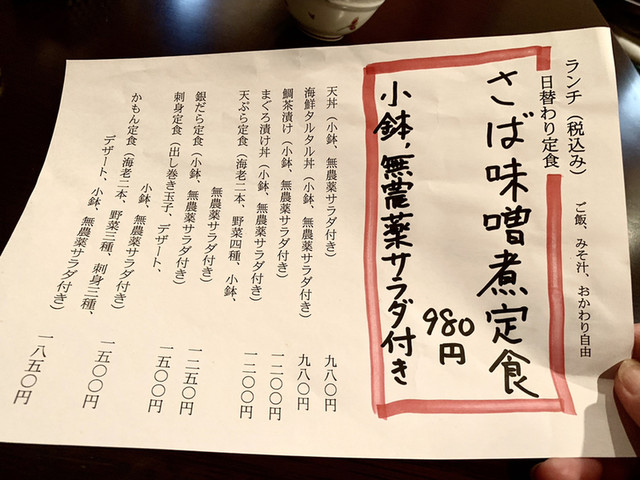 ランチ（税込み）
ご飯、みそ汁、おかわり自由
日替わり定食
さば味噌煮定食
980円
小鉢、無農薬サラダ付き
天丼（小鉢、無農薬サラダ付き） 九八〇円
海鮮タルタル丼（小鉢、無農薬サラダ付き） 九八〇円
鯛茶漬け（小鉢、無農薬サラダ付き） 一二〇〇円
まぐろ漬け丼（小鉢、無農薬サラダ付き） 一二〇〇円
天ぷら定食（海老二本、野菜四種、小鉢、
無農薬サラダ付き） 一二〇〇円
銀だら定食（小鉢、無農薬サラダ付き） 一二五〇円
刺身定食（出し巻き玉子、デザート、
小鉢、無農薬サラダ付き） 一五〇〇円
かもん定食（海老二本、野菜三種、刺身三種、
デザート、小鉢、無農薬サラダ付き）
一五〇〇円
一八五〇円